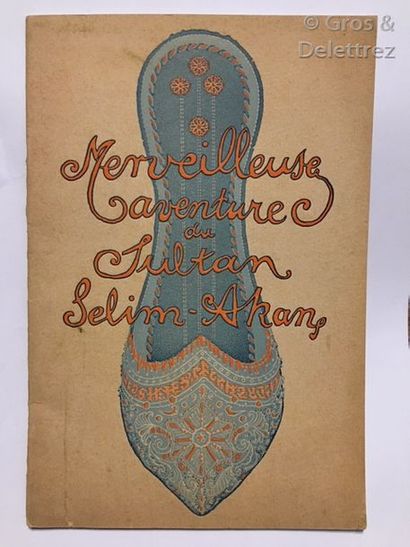 © Gros &
Delettrez
Merveilleuse
aventure
du
Sultan
Selim-Akan